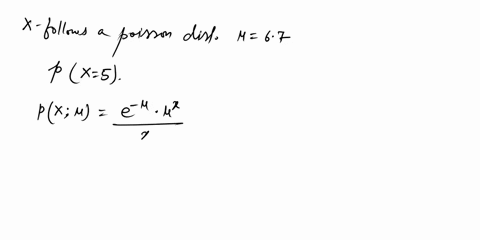 X-follows a poisson dist. μ = 6.7
P(X=5).
P(X;μ) = e^{-μ}·μ^x / x